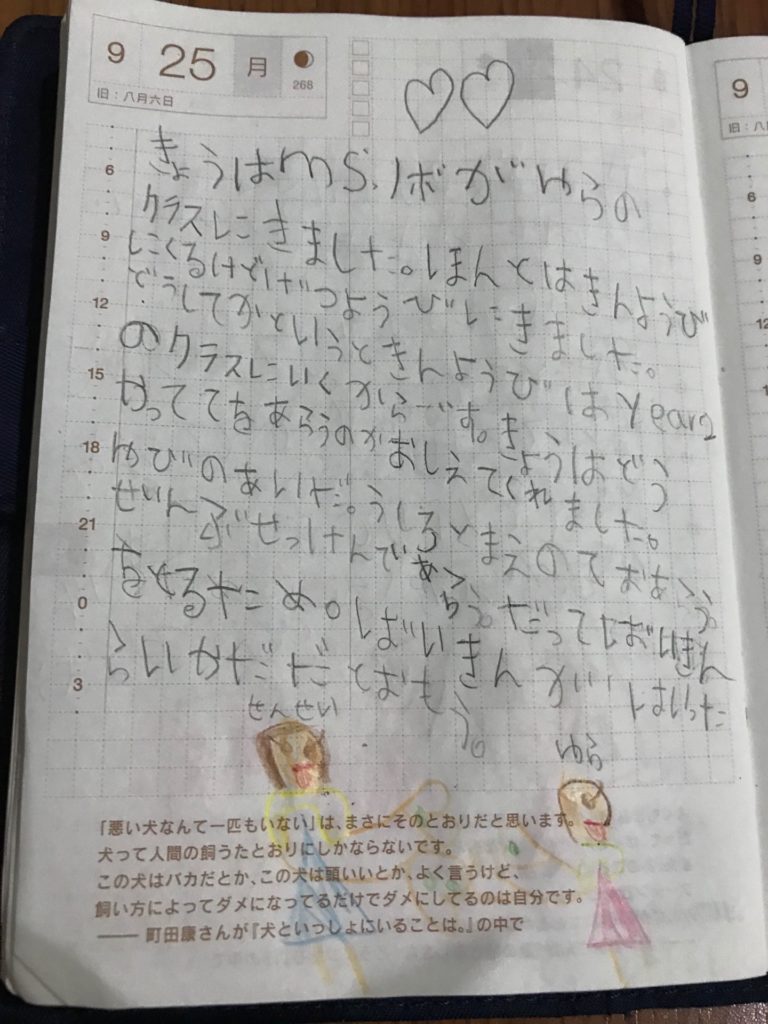 9 25 月
268
旧：八月六日
きょうはms.ノボがゆらの
クラスにきました。ほんとはきんようび
にくるけどげつようびにきました。
どうしてかというときんようびはYear2
のクラスにいくからです。きょうはどう
やっててをあらうのかおしえてくれました。
ゆびのあいだ。うしろとまえのておあらう。
せいんぶせっけんであらう。だってばいきん
をとるため。ばいきんがはいった
らいかだだとおもう。
せんせい
ゆら
6
9
12
15
18
21
0
3
「悪い犬なんて一匹もいない」は、まさにそのとおりだと思います。
犬って人間の飼うたとおりにしかならないです。
この犬はバカだとか、この犬は頭いいとか、よく言うけど、
飼い方によってダメになってるだけでダメにしてるのは自分です。
—— 町田康さんが『犬といっしょにいることは。』の中で
9
旧：八
6
9
12